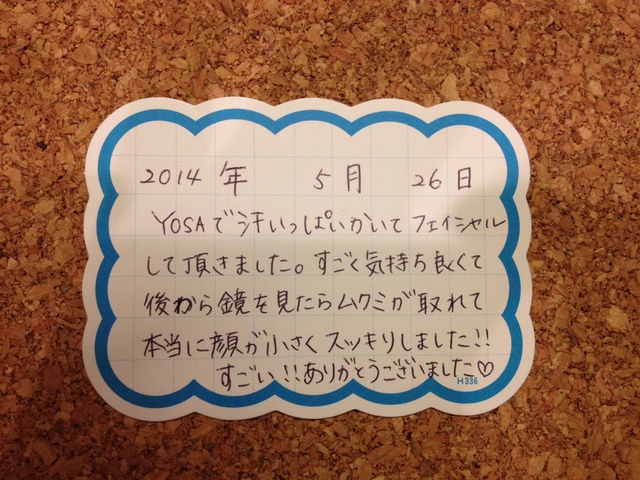 2014 年 5 月 26 日
YOSAで汗いっぱいかいてフェイシャル
して頂きました。すごく気持ち良くて
後から鏡を見たらムクミが取れて
本当に顔が小さくスッキリしました!!
すごい!!ありがとうございました♡
H336